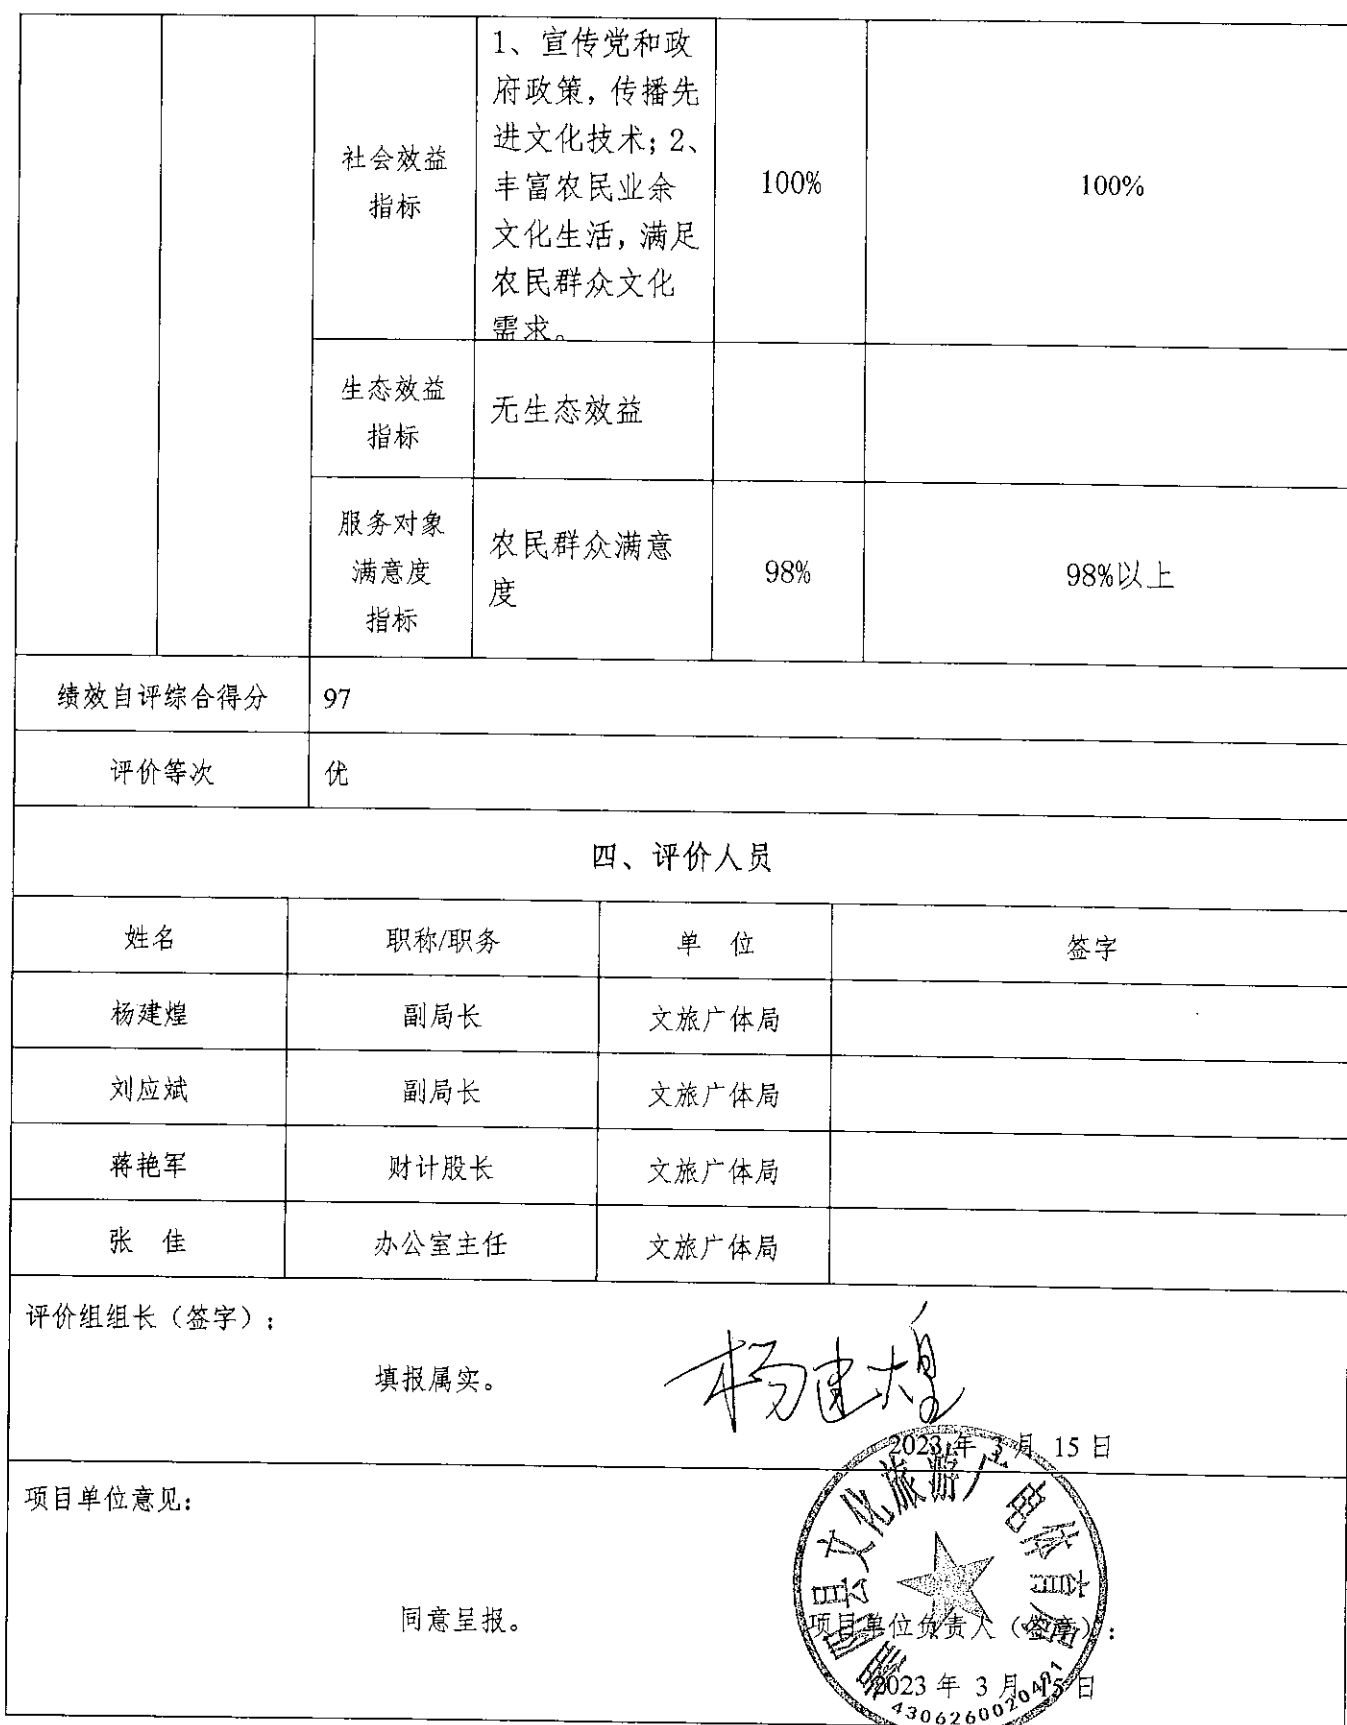 社会效益
指标
1、宣传党和政
府政策，传播先
进文化技术；2、
丰富农民业余
文化生活，满足
农民群众文化
需求。
100%
100%
生态效益
指标
无生态效益
服务对象
满意度
指标
农民群众满意
度
98%
98%以上
绩效自评综合得分
97
评价等次
优
四、评价人员
姓名
职称/职务
单 位
签字
杨建煌
副局长
文旅广体局
刘应斌
副局长
文旅广体局
蒋艳军
财计股长
文旅广体局
张 佳
办公室主任
文旅广体局
评价组组长（签字）：
填报属实。
杨建煌
2023 年 3 月 15 日
项目单位意见：
同意呈报。
文化旅游广电体育局
项目单位负责人（签章）：
2023 年 3 月 15 日